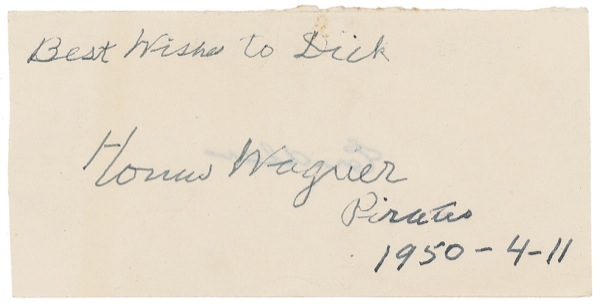 Best Wishes to Dick
Honus Wagner
Pirates
1950-4-11